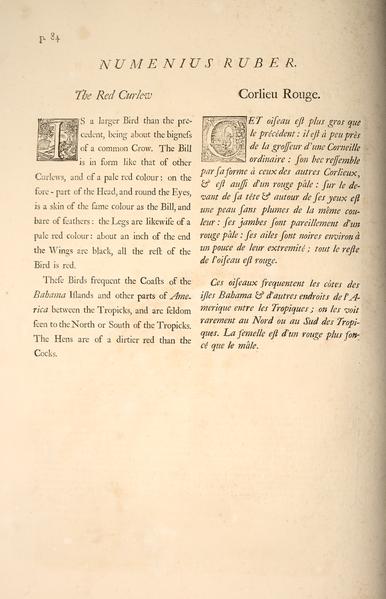 p. 84
NUMENIUS RUBER.
The Red Curlew
IS a larger Bird than the pre-
cedent, being about the bigneſs
of a common Crow. The Bill
is in form like that of other
Curlews, and of a pale red colour: on the
fore-part of the Head, and round the Eyes,
is a skin of the ſame colour as the Bill, and
bare of feathers: the Legs are likewiſe of a
pale red colour: about an inch of the end
the Wings are black, all the reſt of the
Bird is red.
Theſe Birds frequent the Coaſts of the
Bahama Iſlands and other parts of Ame-
rica between the Tropicks, and are ſeldom
ſeen to the North or South of the Tropicks.
The Hens are of a dirtier red than the
Cocks.
Corlieu Rouge.
CET oiſeau eſt plus gros que
le précédent: il eſt à peu près
de la groſſeur d'une Corneille
ordinaire: ſon bec reſſemble
par ſa forme à ceux des autres Corlieux,
& eſt auſſi d'un rouge pâle: ſur le de-
vant de ſa tête & autour de ſes yeux eſt
une peau ſans plumes de la même cou-
leur: ſes jambes ſont pareillement d'un
rouge pâle: ſes ailes ſont noires environ à
un pouce de leur extremité; tout le reſte
de l'oiſeau eſt rouge.
Ces oiſeaux frequentent les côtes des
iſles Bahama & d'autres endroits de l'A-
merique entre les Tropiques; on les voit
rarement au Nord ou au Sud des Tropi-
ques. La femelle eſt d'un rouge plus fon-
cé que le mâle.